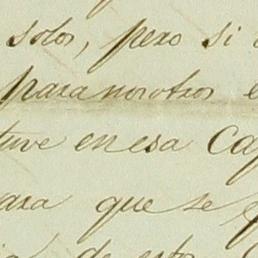 solos, pero si
para nosotros
tuve en esa Ca
ara que se
de esto